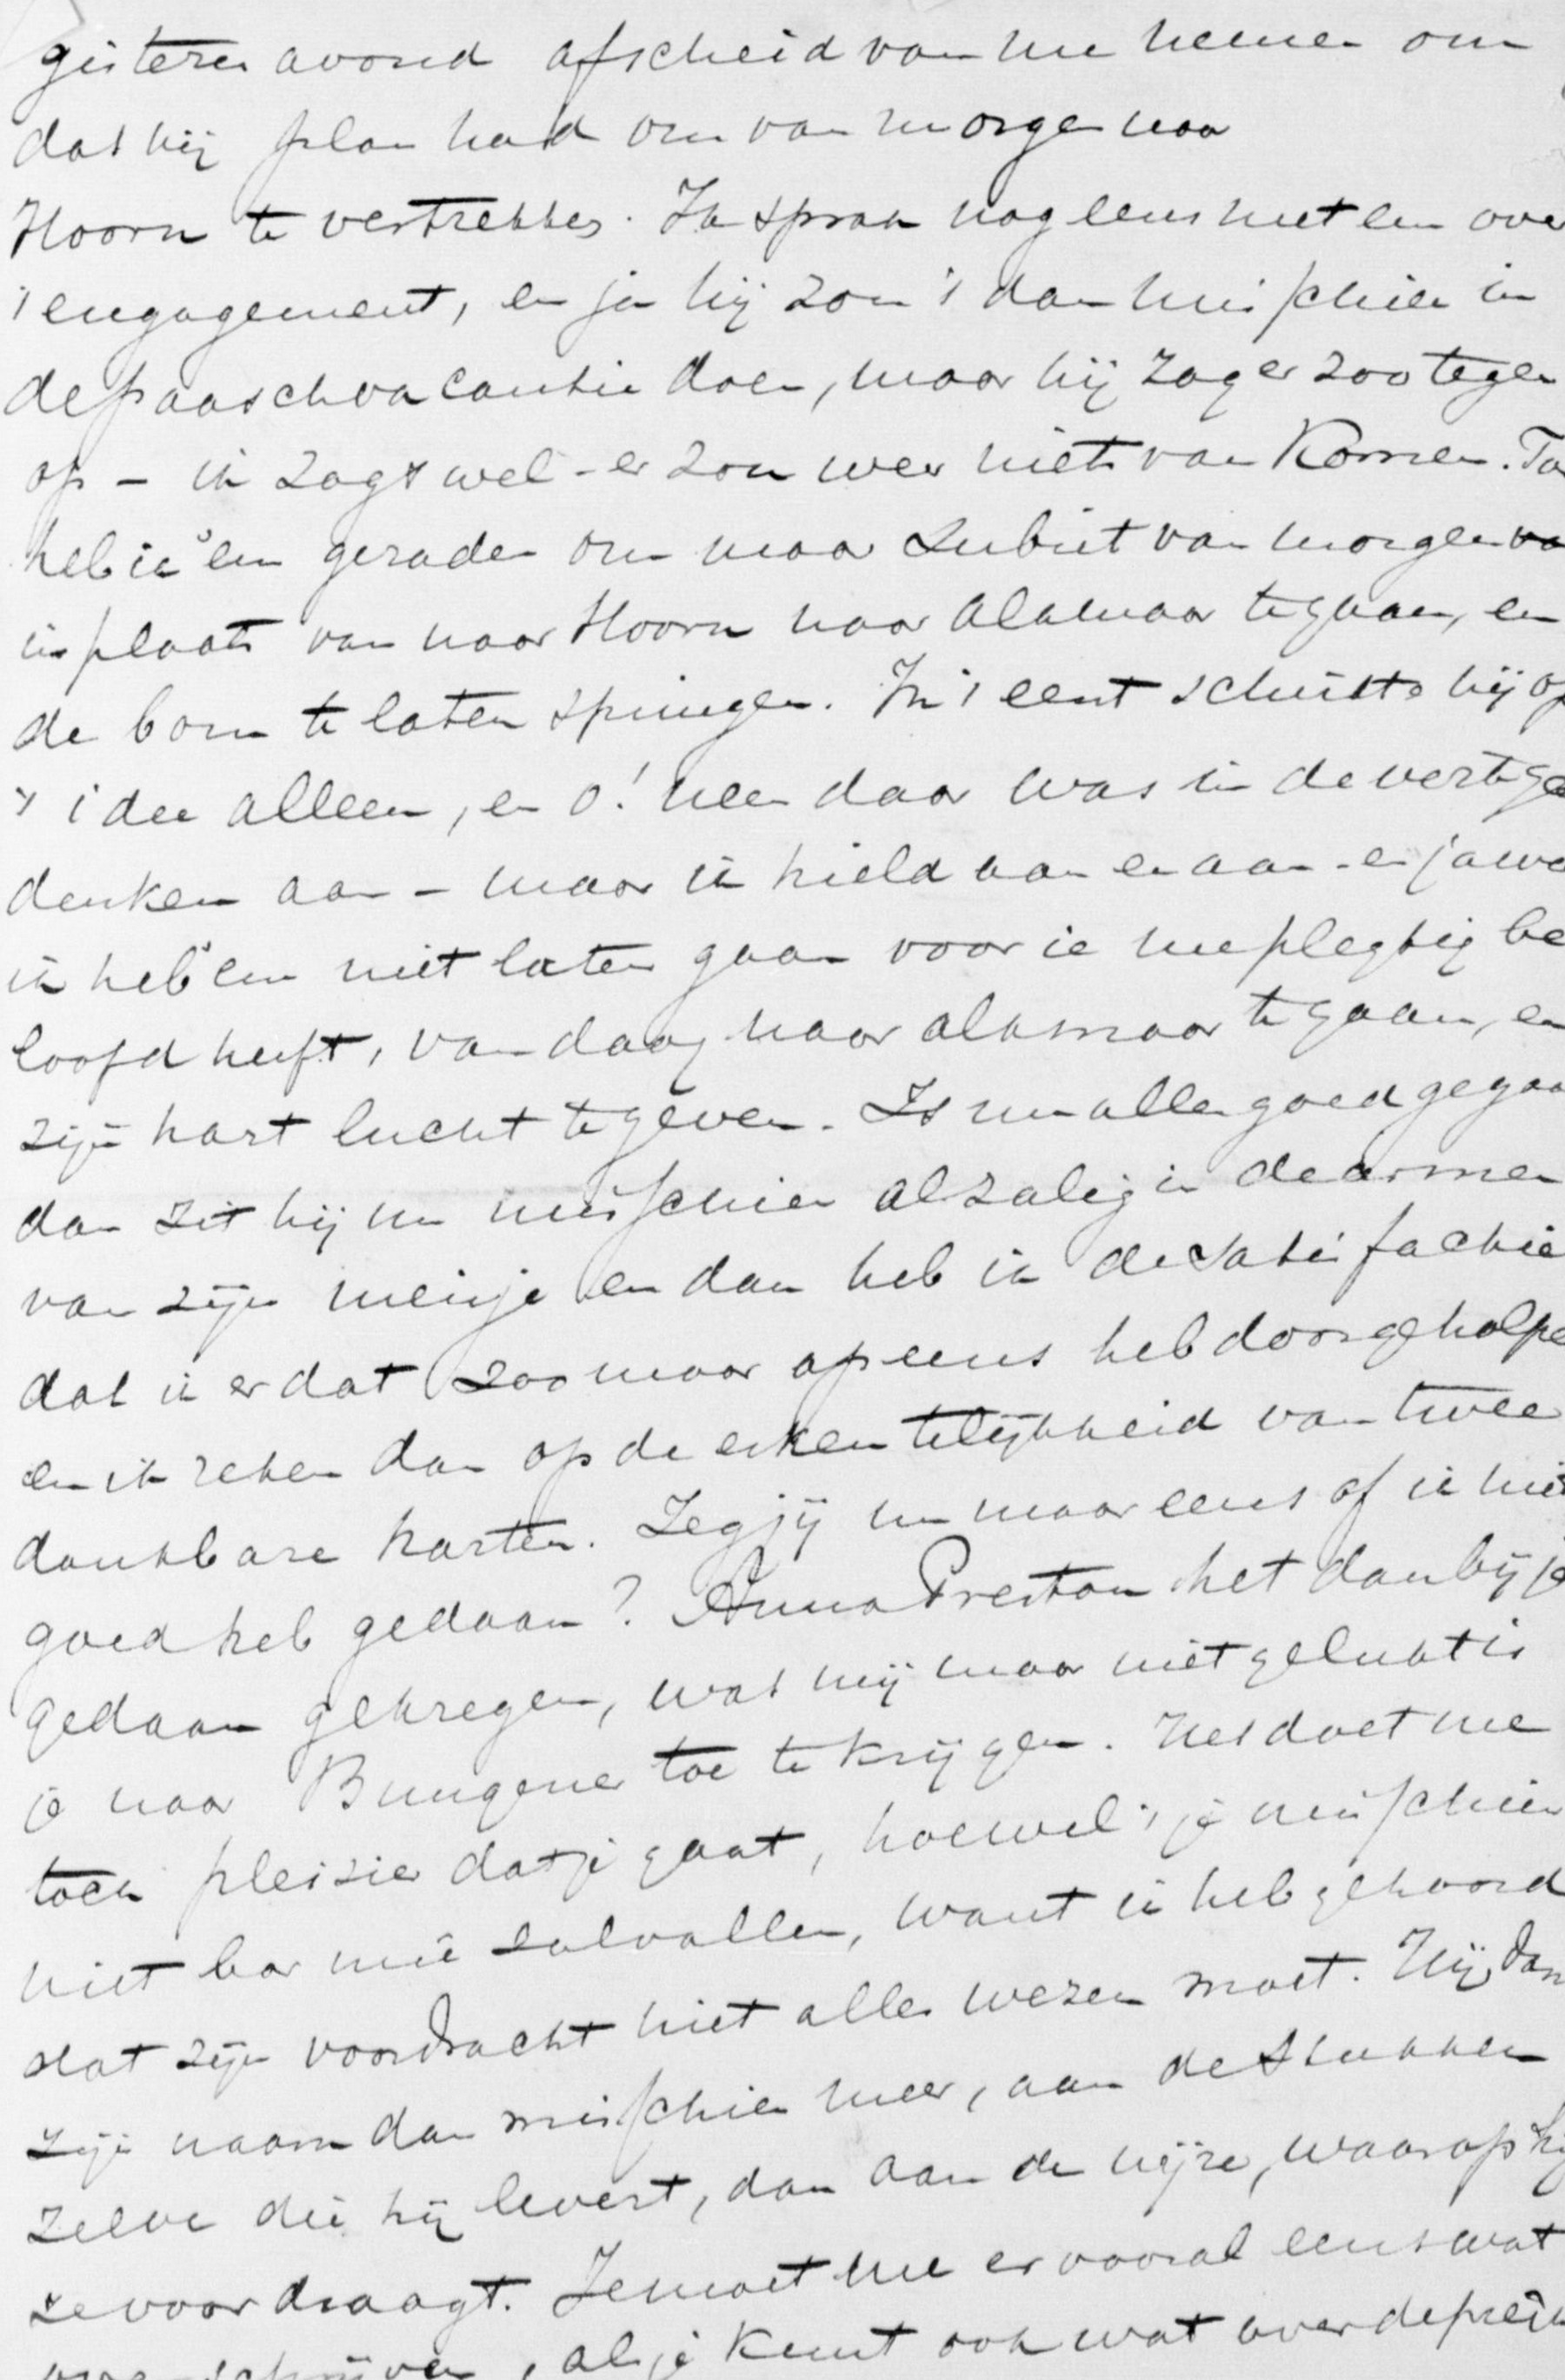 gisteren avond afscheid van me nemen om
dat hij plan had om van morgen naar
Hoorn te vertrekken. Ik sprak nog eens met em over
't engagement, en ja hij zou 't dan misschien in
de paaschvacantie doen, maar hij zag er zoo tegen
op – ik zag 't wel – er zou weer niets van komen. Toe
heb ik 'em geraden om maar subiet van morgen
in plaats van naar Hoorn naar Alkmaar te gaan, en
de bom te laten springen. In 't eerst schrikte hij op
't idee alleen, en o! neen daar was in de verte ge
denken aan – maar ik hield aan en aan – en jawel
ik heb 'em niet laten gaan voor ie me plegtig be
loofd heeft, van daag naar Alkmaar te gaan, en
zijn hart lucht te geven. Is nu alles goed gegaan
dan zit hij nu misschien al zalig in de armen
van zijn meisje en dan heb ik de satisfactie
dat ik er dat zoo maar opeens heb doorgeholpen
en ik reken dan op de erkentelijkheid van twee
dankbare harten. Zeg jij nu maar eens of ik niet
goed heb gedaan? Anna Preston het dan bij je
gedaan gekregen, wat mij maar niet gelukt is
je naar Bungener toe te krijgen. Het doet me
toch pleisier dat je gaat, hoewel 't je misschien
niet bar mee zal vallen, want ik heb gehoord
dat zijn voordracht niet alles wezen moet. Hij dankt
zijn naam dan misschien meer, aan de stukken
zelve die hij levert, dan aan de wijze, waarop hij
ze voordraagt. Je moet me er vooral eens wat
over schrijven, als je kunt ook wat over de preek